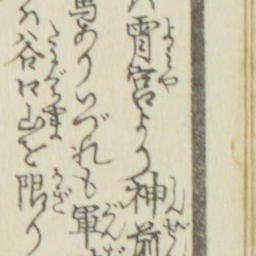 宵宮より神前
馬ありいづれも軍
谷口山を限り